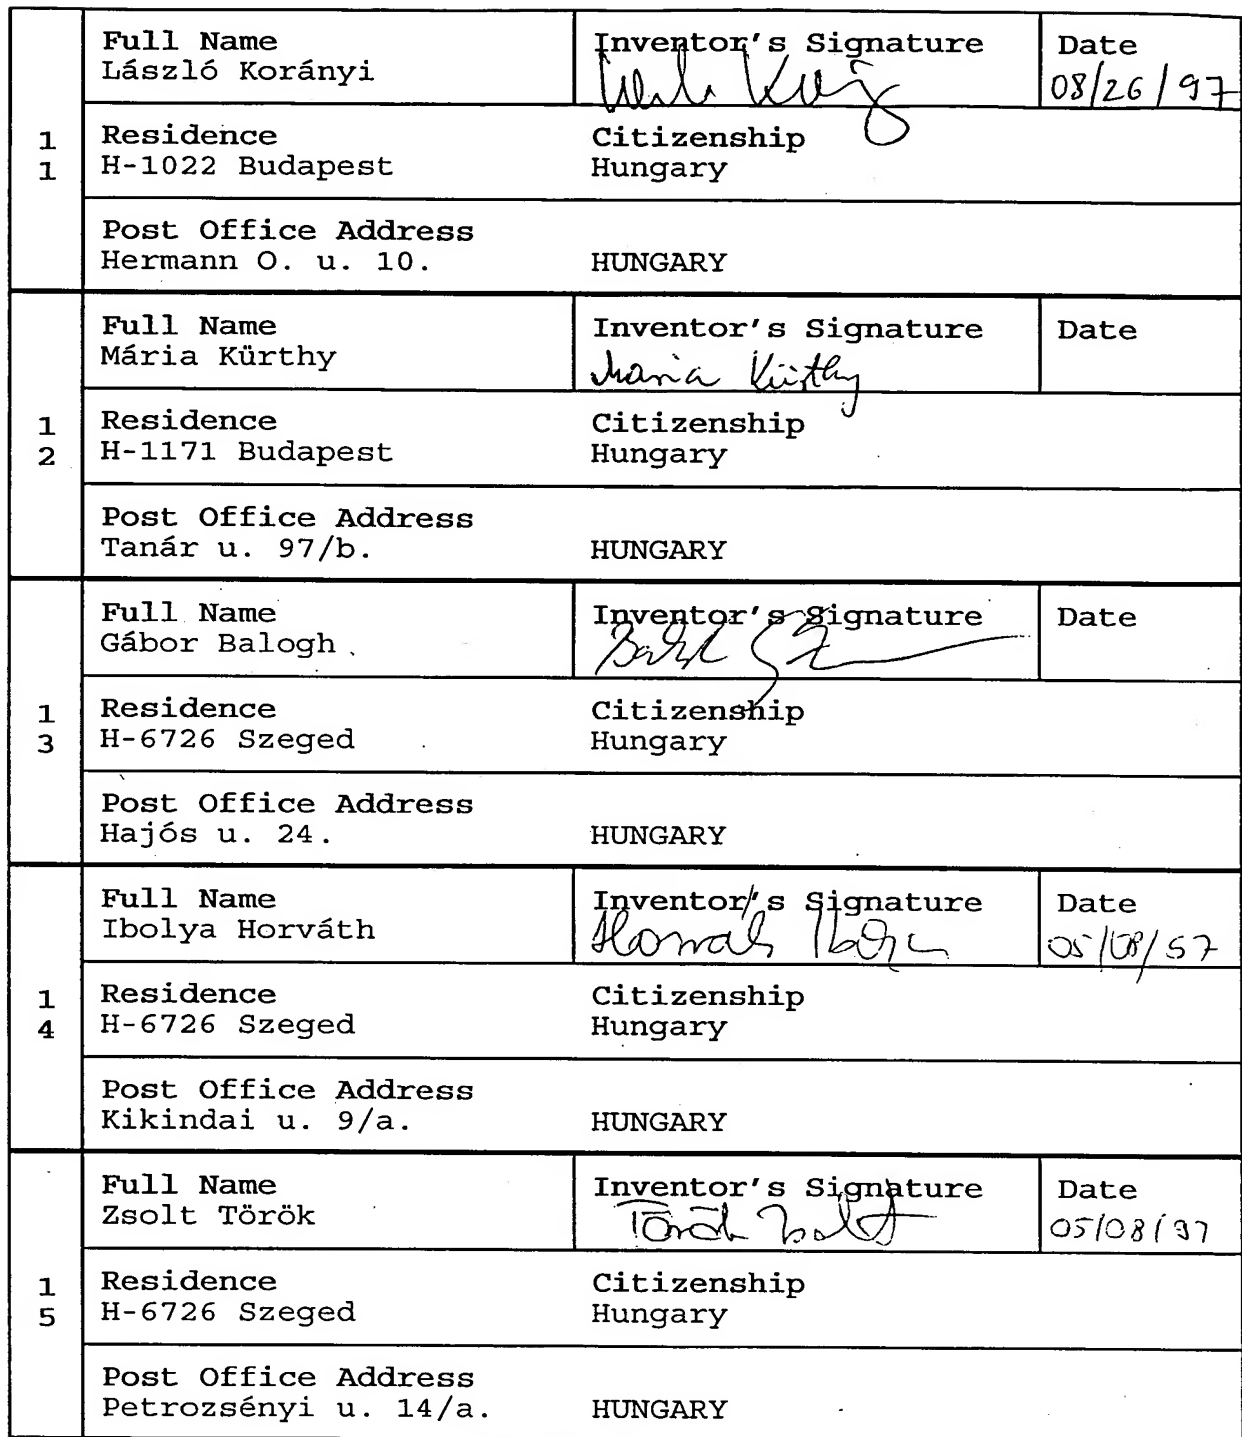 Full Name
László Korányi
Inventor's Signature
Date
08/26/97
1
1
Residence
H-1022 Budapest
Citizenship
Hungary
Post Office Address
Hermann O. u. 10.
HUNGARY
Full Name
Mária Kürthy
Inventor's Signature
Maria Kürthy
Date
1
2
Residence
H-1171 Budapest
Citizenship
Hungary
Post Office Address
Tanár u. 97/b.
HUNGARY
Full Name
Gábor Balogh
Inventor's Signature
Date
1
3
Residence
H-6726 Szeged
Citizenship
Hungary
Post Office Address
Hajós u. 24.
HUNGARY
Full Name
Ibolya Horváth
Inventor's Signature
Horváth Ibolya
Date
1
4
Residence
H-6726 Szeged
Citizenship
Hungary
Post Office Address
Kikindai u. 9/a.
HUNGARY
Full Name
Zsolt Török
Inventor's Signature
Török Zsolt
Date
05/08/97
1
5
Residence
H-6726 Szeged
Citizenship
Hungary
Post Office Address
Petrozsényi u. 14/a.
HUNGARY